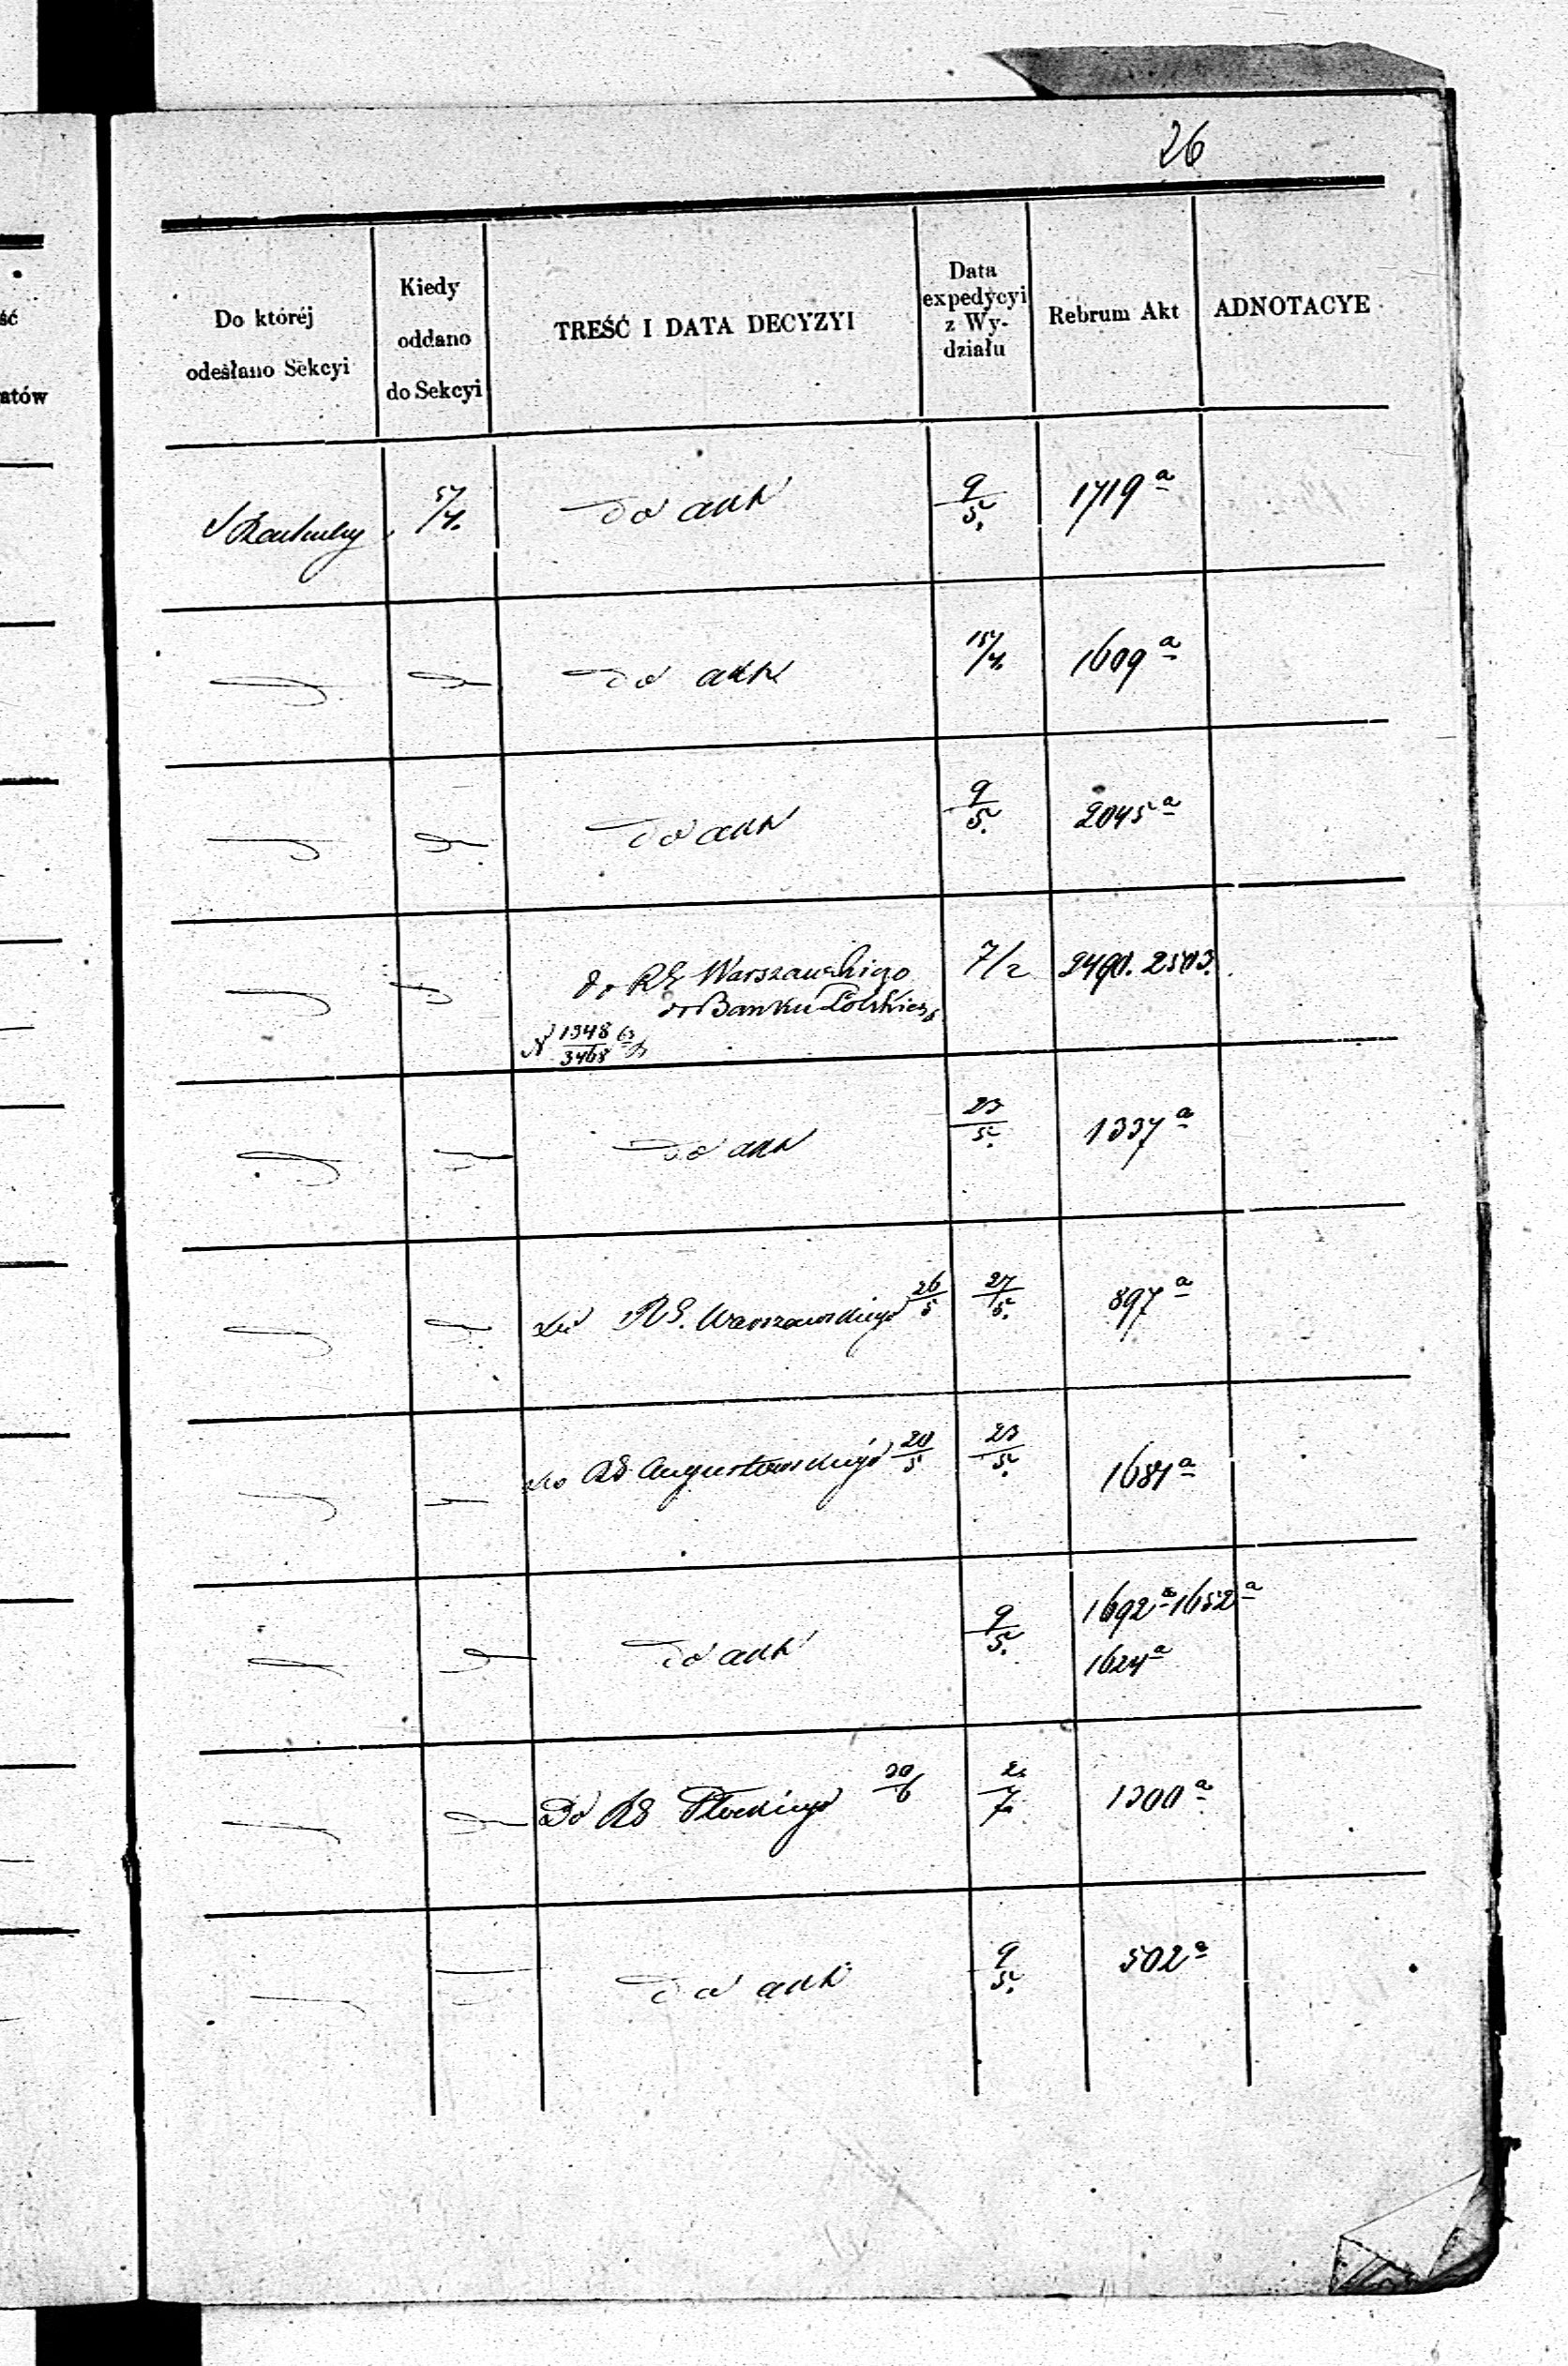 26
ść
atów
Do któréj
odesłano Sekcyi
Kiedy
oddano
do Sekcyi
TREŚĆ I DATA DECYZYI
Data
expedycyi
z Wy-
działu
Rebrum Akt
ADNOTACYE
5/4. do akt 9/5. 1719 a
do akt 15/4. 1609 a
do akt 9/5. 2045 a
do RG Warszawskiego 7/2 2490. 2503.
do Banku Polskiego
N 1348/3468
do akt 23/5. 1337 a
do RG. Warszawskiego 26/5 27/5. 897 a
do RG Augustowskiego 20/5 23/5. 1684 a
do akt 9/5. 1692 a 1652 a
1624 a
Do RG Płockiego 30/6 2/7. 1300 a
do akt 9/5. 502 a